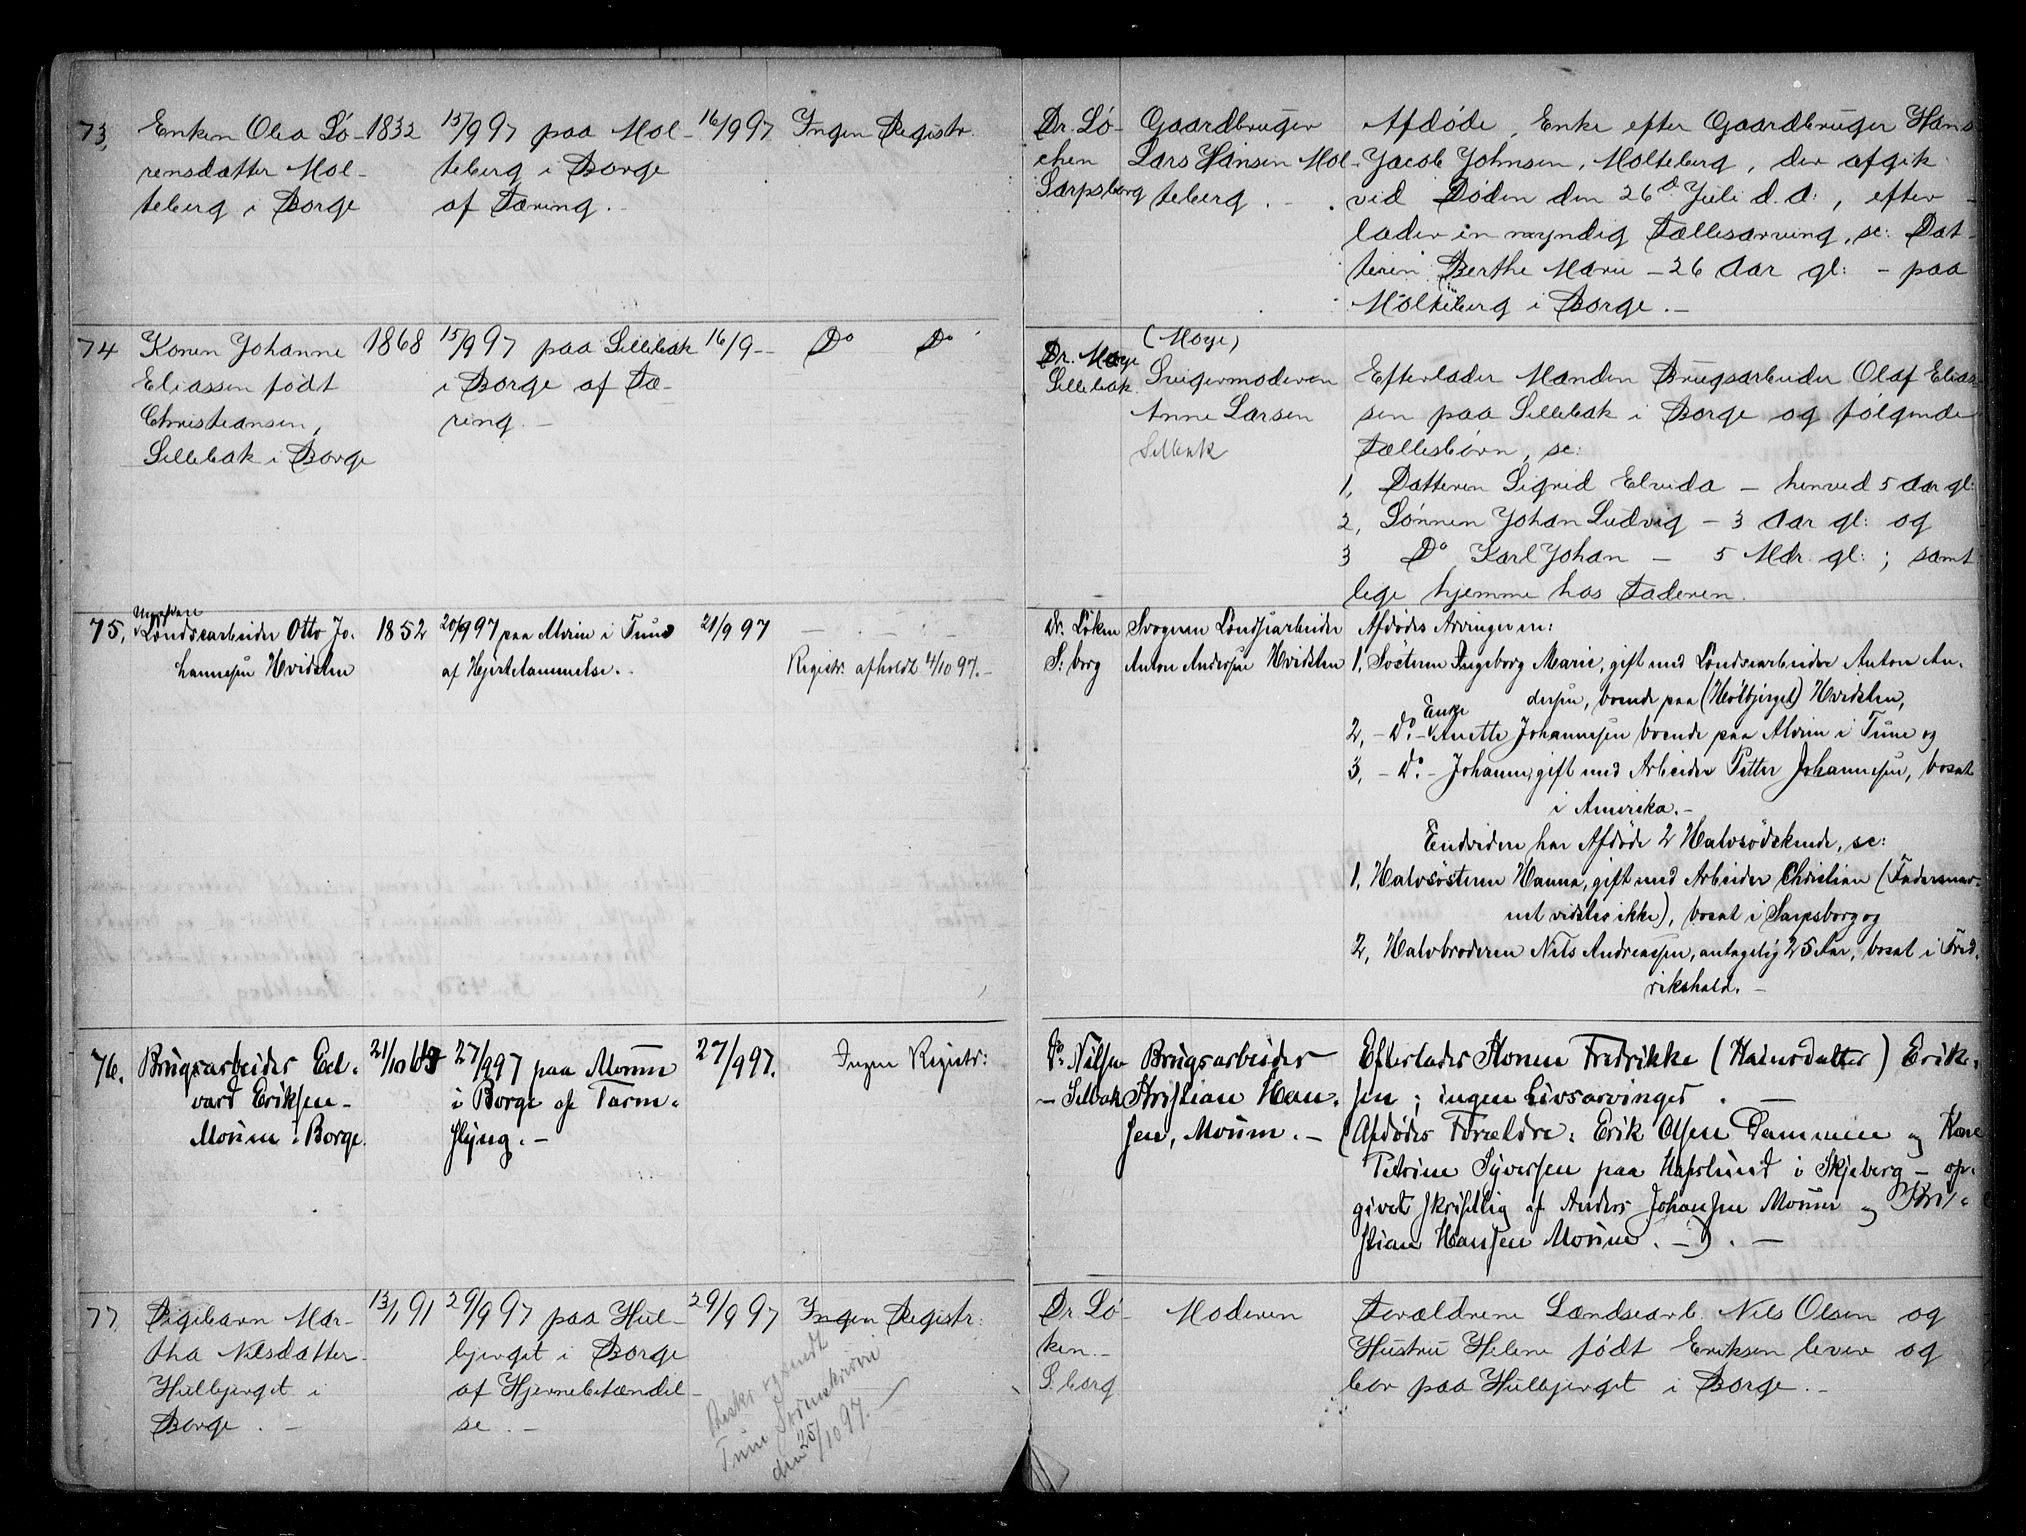 73, Enken Olia Sö- 1832 15/9 97 paa Mol- 16/9 97 Ingen Registr. Dr. Lö- Gaardbruger Afdöde, Enke efter Gaardbruger Hans
rensdatter Mol- teberg i Borge chen Lars Hansen Mol- Jacob Johnsen, Molteberg, der afgik
teberg i Borge af Tæring.- Sarpsborg teberg. ved Döden den 26d Juli d. a:, efter-
lader en myndig Fællesarving, sc: Dat-
teren Berthe Marie - 26 Aar gl: - paa
Molteberg i Borge.-
74 Konen Johanne 1868 15/9 97 paa Sillebak 16/9 - Do Do Dr. Moye (Moye)
Eliassen födt i Borge af Tæ- Sillebak. Svigermoderen Efterlader Manden Brugsarbeider Olaf Elias-
Christiansen, ring.- Anne Larsen sen paa Sillebak i Borge og fölgende
Sillebak i Borge Selbak Fællesbörn, sc:
1, Datteren Sigrid Elvida - henved 5 Aar gl:
2, Sönnen Johan Ludvig - 3 Aar gl: og
3 Do Karl Johan - 5 Mdr. gl: ; samt
lige hjemme hos Faderen.
75, Ungkarl
Londsearbeider Otto Jo- 1852 20/9 97 paa Alvim i Tune 21/9 97 - - - Dr. Löken Svogeren Londsearbeider Afdödes Arvinger er:
hannesen Hvidsten af Hjertelammelse.- Registr. afholdt 4/10 97.- S: borg Anton Andersen Hvidsten 1, Sösteren Ingeborg Marie, gift med Londsearbeider Anton An-
dersen, boende paa (Hölbjerget) Hvidsten,
2, - Do. - Enke Anette Johannesen boende paa Alvim i Tune og
3, - Do. - Johanne, gift med Arbeider Petter Johannesen, bosat
i Amerika.-
Endvidere har Afdöde 2 Halvsödskende, sc:
1, Halvsösteren Hanna, gift med Arbeider Christian (Fadersnav-
net vidstes ikke), bosat i Sarpsborg og
2, Halvbroderen Nils Andreassen, antagelig 25 Aar, bosat i Fred-
rikshald.-
76. Brugsarbeider Ed- 21/10 65 27/9 97 paa Moum 27/9 97. Ingen Registr: Do. Nilsen Brugsarbeider Efterlader Konen Fredrikke (Hansdatter) Erik-
vard Eriksen - i Borge af Tarm- - Selbak Kristian Han- sen ; ingen Livsarvinger. -
Moum i Borge. slyng.- sen, Moum.- (Afdödes Forældre: Erik Olsen Dammen og Kare
Petrine Syversen paa Hafslund i Skjeberg - op-
givet skriftlig af Anders Johansen Moum og Kri-
stian Hansen Moum.-).-
77. Pigebarn Mar- 13/1 91 29/9 97 paa Hul- 29/9 97 Ingen Registr: Dr. Lö- Moderen Forældrene Landsearb. Nils Olsen og
tha Nilsdatter bjerget i Borge ken.- Hustru Helene födt Eriksen lever og
Hulbjerget i af Hjernebetændel- S. borg bor paa Hulbjerget i Borge.-
Borge.- se.-
Tune Sorenskriveri
den 25/10 97.